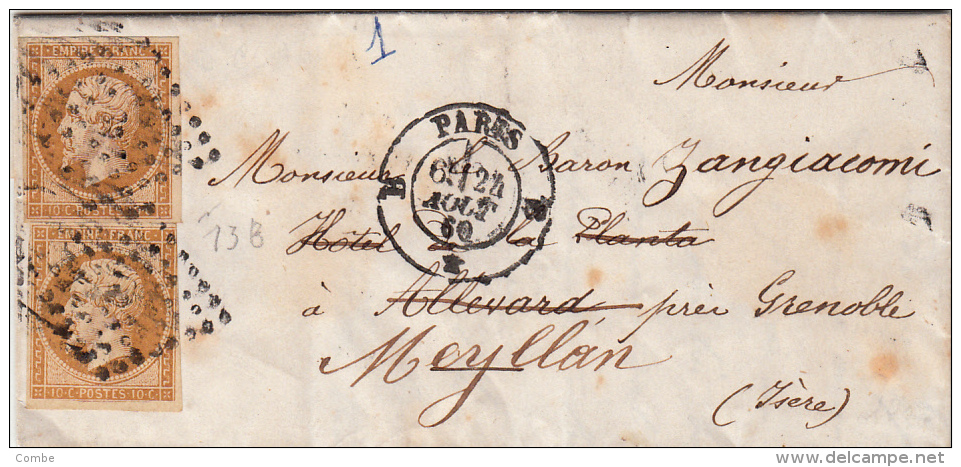 1
Monsieur
EMPIRE FRANC
10·C·POSTES 10·C·
EMPIRE FRANC
10·C·POSTES 10·C·
PARIS
6E 24
AOUT
60
Monsieur Baron Zangiacomi
13 B
Hôtel de la Planta
à Allevard près Grenoble
Meyllán
(Isère)
Combe
delcampe.net